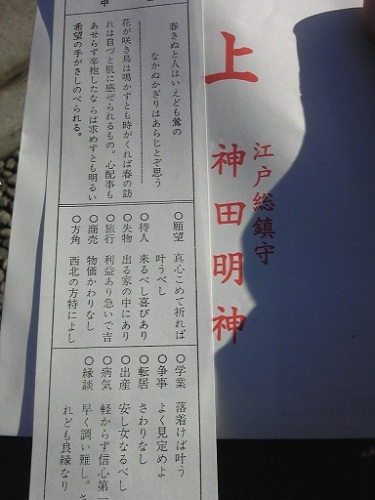 上
江戸総鎮守
神田明神
春きぬと人はいえども鶯の
なかぬかぎりはあらじとぞ思う
花が咲き鳥は鳴かずとも時がくれば春の訪
れは自づと肌に感ぜられるもの。心配事も
あせらず辛抱したならば求めずとも明るい
希望の手がさしのべられる。
○願望 真心こめて祈れば
叶うべし
○待人 来るべし喜びあり
○失物 出る家の中にあり
○旅行 利益あり急いで吉
○商売 物価かわりなし
○方角 西北の方特によし
○学業 落着けば叶う
○争事 よく見定めよ
○転居 さわりなし
○出産 安し女なるべし
○病気 軽からず信心第一
○縁談 早く調い難し。さ
れども良縁なり